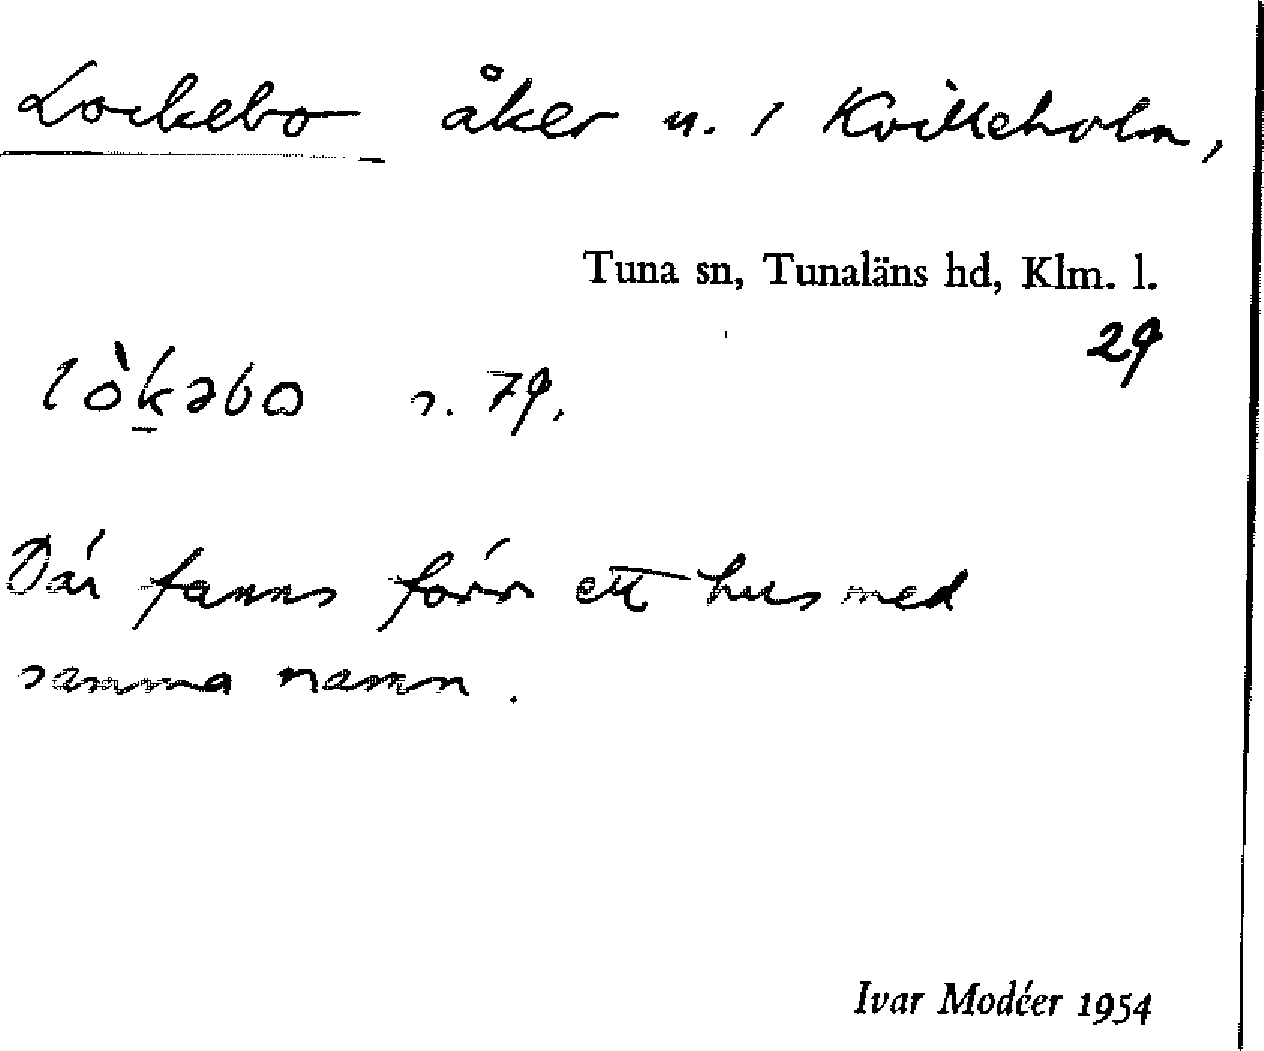 Lockebo åker u. / Kvilleholm,
Tuna sn, Tunaläns hd, Klm. l.
29
lòk̲əbo s. 79.
Där fanns förr ett hus med
samma namn.
Ivar Modéer 1954